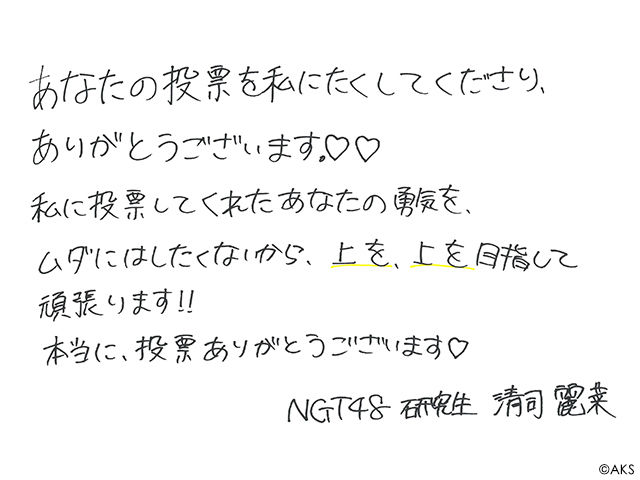 あなたの投票を私にたくしてくださり、
ありがとうございます。♡♡
私に投票してくれたあなたの勇気を、
ムダにはしたくないから、上を、上を目指して
頑張ります!!
本当に、投票ありがとうございます♡
NGT48 研究生 清司麗菜
©AKS